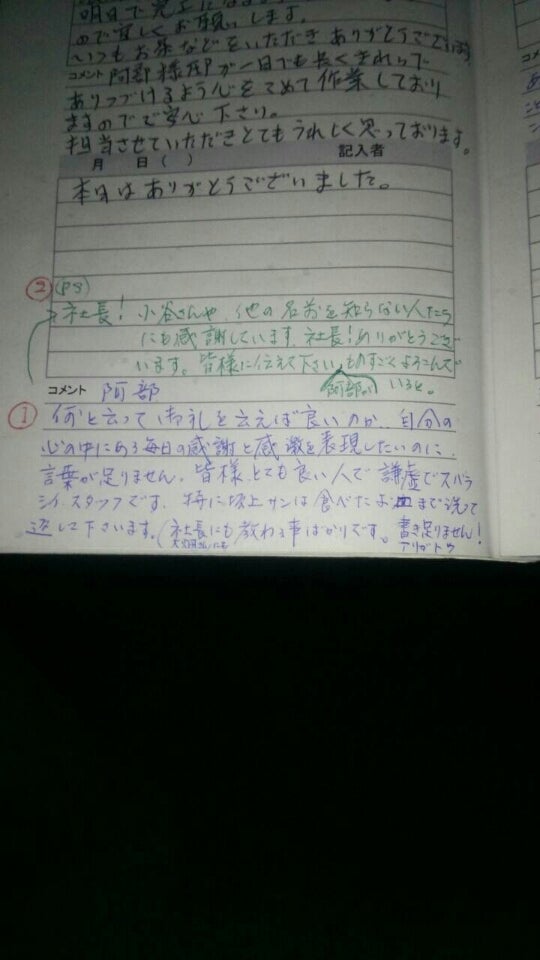 明日で完工になります
ので宜しくお願いします。
いつもお茶などをいただきありがとうございます
コメント 阿部様邸が一日でも長くきれいで
ありつづけるよう心をこめて作業しており
ますのでご安心下さい。
担当させていただきとてもうれしく思っております。
月 日( ) 記入者
本日はありがとうございました。
② (PS)
社長! 小谷さんや、他の名前を知らない人たち
にも感謝しています。社長!ありがとうござ
います。皆様に伝えて下さい。ものすごくよろこんで
阿部が いると。
コメント 阿部
① 何と云って御礼を云えば良いのか、自分の
心の中にある毎日の感謝と感激を表現したいのに、
言葉が足りません。皆様とても良い人で謙虚でスバラ
シイスタッフです。特に坂上サンは食べたお皿まで洗って
返して下さいます。(社長にも教わる事ばかりです。書き足りません!
アリガトウ